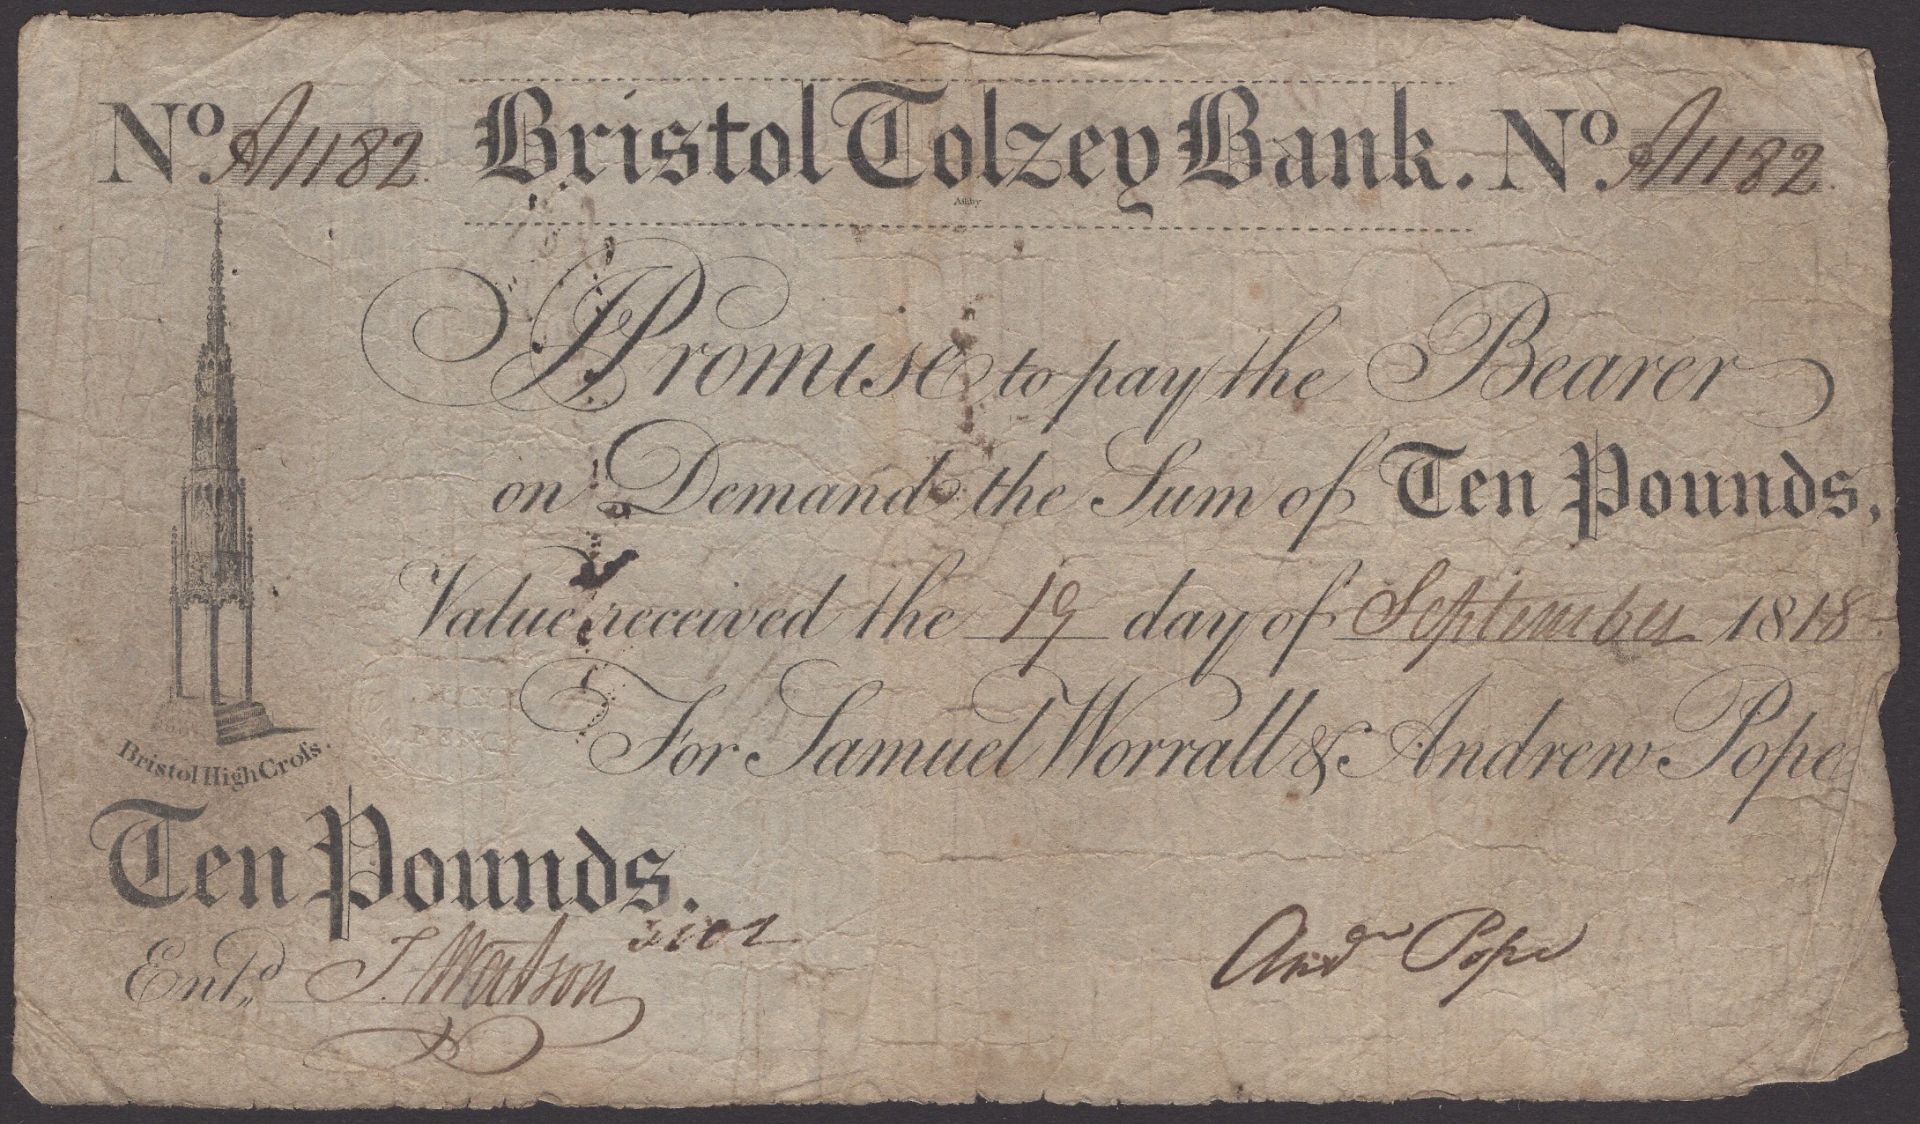 No. A1182 Bristol Tolzey Bank. No. A1182
Ashby
I Promise to pay the Bearer
on Demand the Sum of Ten Pounds,
Value received the 19 day of September 1818
For Samuel Worrall & Andrew Pope
Bristol High Croſs.
Ten Pounds.
Entd. J. Watson
Andw Pope